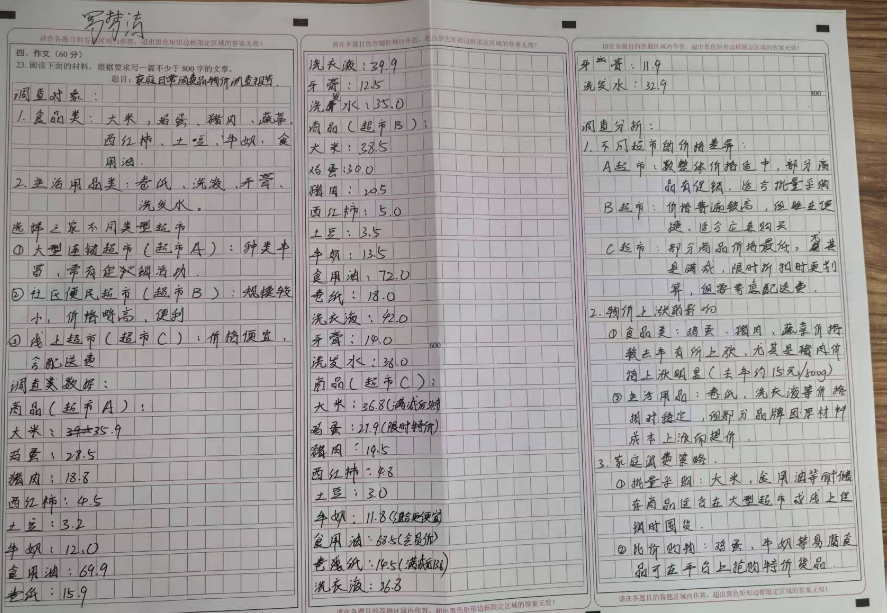 罗梦洁
请在各题目的答题区域内作答，超出黑色矩形边框限定区域的答案无效！
四、作文（60分）
23. 阅读下面的材料，根据要求写一篇不少于800字的文章。
题目：家庭日常消费品物价调查报告
调查对象：
1. 食品类：大米、鸡蛋、猪肉、蔬菜、
西红柿、土豆、牛奶、食
用油.
2. 生活用品类：卷纸、洗液、牙膏、
洗发水。
选择三家不同类型超市
① 大型连锁超市（超市A）：种类丰
富，常有促销活动.
② 社区便民超市（超市B）：规模较
小，价格略高，便利
③ 线上超市（超市C）：价格便宜，
含配送费
调查数据：
商品（超市A）：
大米：35.9
鸡蛋：28.5
猪肉：18.8
西红柿：4.5
土豆：3.2
牛奶：12.0
食用油：69.9
卷纸：15.9
请在各题目的答题区域内作答，超出黑色矩形边框限定区域的答案无效！
洗衣液：39.9
牙膏：12.5
洗发水：35.0
商品（超市B）：
大米：38.5
鸡蛋：30.0
猪肉：20.5
西红柿：5.0
土豆：3.5
牛奶：13.5
食用油：72.0
卷纸：18.0
洗衣液：42.0
牙膏：14.0
600
洗发水：38.0
商品（超市C）：
大米：36.8(满减后)
鸡蛋：27.9(限时特价)
猪肉：19.5
西红柿：4.8
土豆：3.0
牛奶：11.8(组合更便宜)
食用油：68.5(会员价)
卷纸：14.5(满减后)
洗衣液：36.8
请在各题目的答题区域内作答，超出黑色矩形边框限定区域的答案无效！
请在各题目的答题区域内作答，超出黑色矩形边框限定区域的答案无效！
牙膏：11.9
洗发水：32.9
800
调查分析：
1. 不同超市的价格差异：
A超市：整体价格适中，部分商
品有促销，适合批量采购
B超市：价格普遍较高，但胜在便
捷，适合应急购买
C超市：部分商品价格最低，尤其
是满减，限时折扣时更划
算，但需考虑配送费.
2. 物价上涨的影响
① 食品类：鸡蛋、猪肉、蔬菜价格
较去年有所上涨，尤其是猪肉价
格上涨明显（去年约15元/500g）
② 生活用品：卷纸、洗衣液等价格
相对稳定，但部分品牌因原材料
成本上涨而提价.
3. 家庭消费策略.
① 批量采购：大米，食用油等耐储
存商品适合在大型超市或线上促
销时囤货.
② 比价购物：鸡蛋、牛奶等易腐食
品可在平台上抢购特价货品.
请在各题目的答题区域内作答，超出黑色矩形边框限定区域的答案无效！